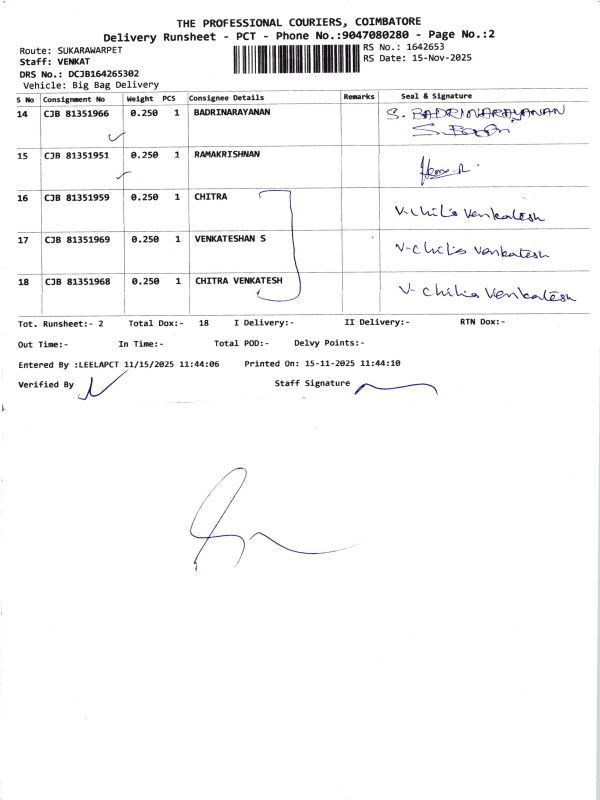 THE PROFESSIONAL COURIERS, COIMBATORE
Delivery Runsheet - PCT - Phone No.:9047080280 - Page No.:2
Route: SUKARAWARPET
RS No.: 1642653
Staff: VENKAT
RS Date: 15-Nov-2025
DRS No.: DCJB164265302
Vehicle: Big Bag Delivery
S No Consignment No Weight PCS Consignee Details Remarks Seal & Signature
14 CJB 81351966 0.250 1 BADRINARAYANAN S. BADRINARAYANAN
S. Badri
15 CJB 81351951 0.250 1 RAMAKRISHNAN
16 CJB 81351959 0.250 1 CHITRA V. Venkatesh
17 CJB 81351969 0.250 1 VENKATESHAN S V. Venkatesh
18 CJB 81351968 0.250 1 CHITRA VENKATESH V. Venkatesh
Tot. Runsheet:- 2 Total Dox:- 18 I Delivery:- II Delivery:- RTN Dox:-
Out Time:- In Time:- Total POD:- Delvy Points:-
Entered By :LEELAPCT 11/15/2025 11:44:06 Printed On: 15-11-2025 11:44:10
Verified By Staff Signature